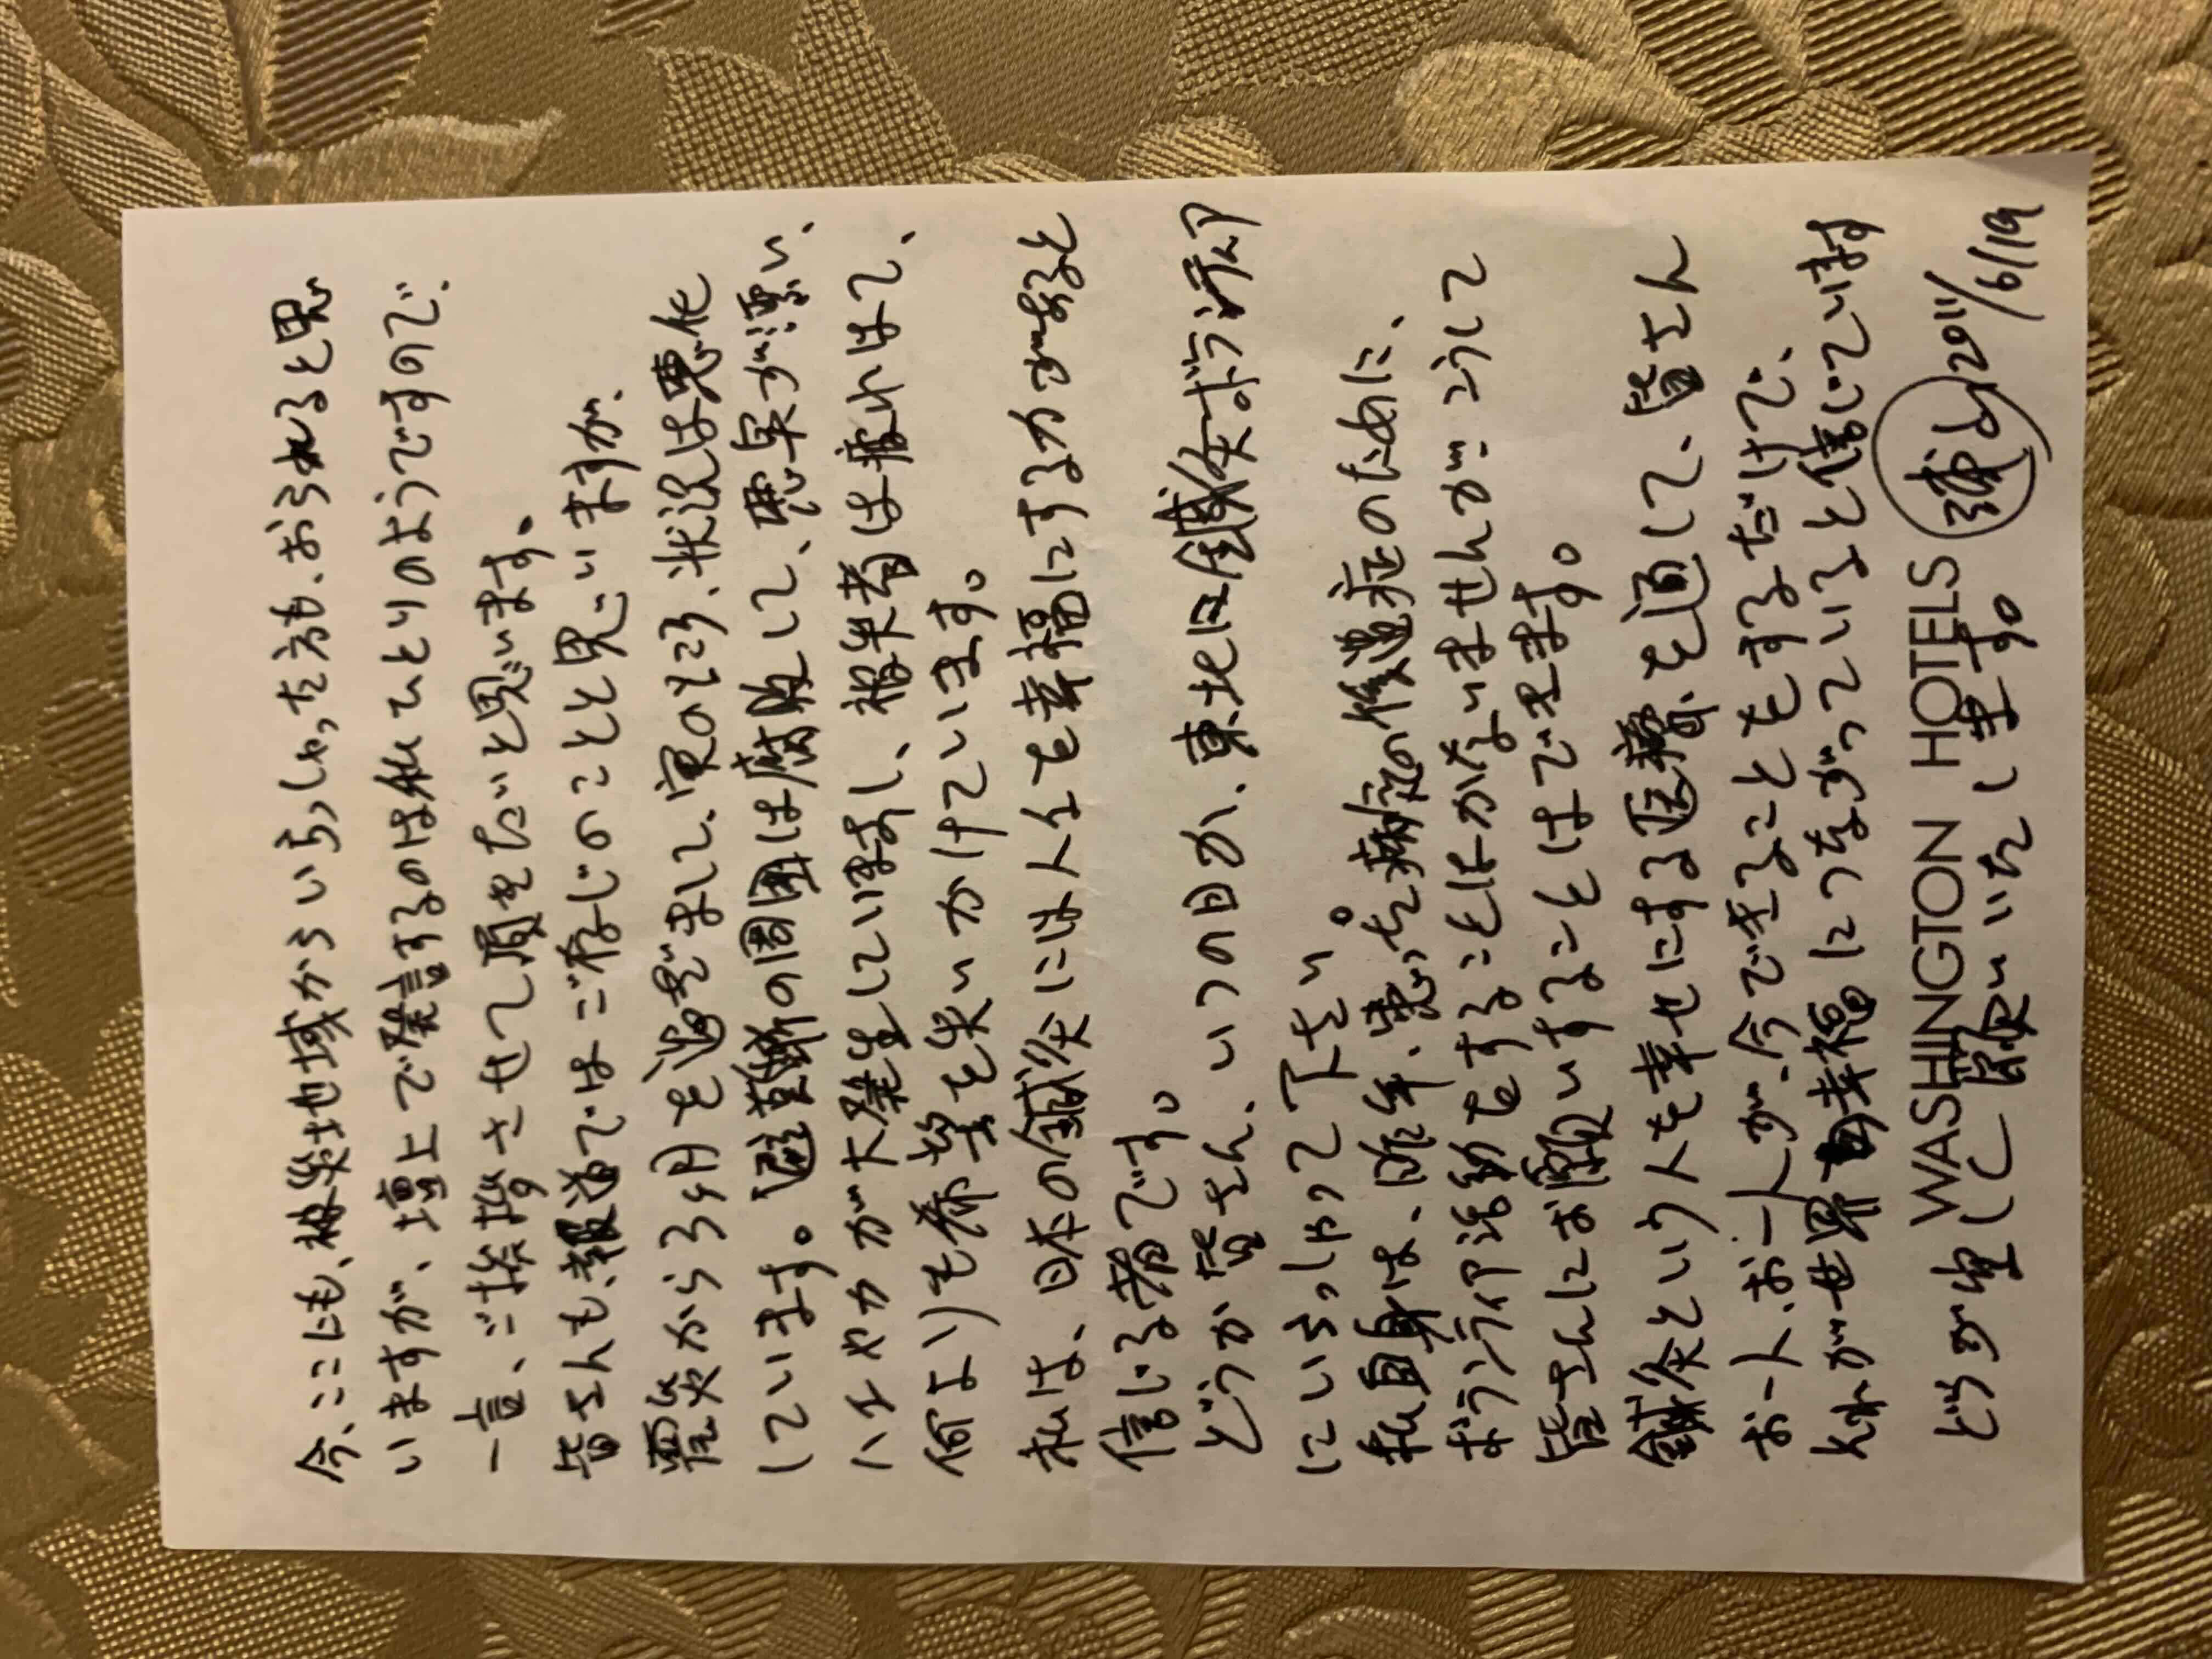 今、ここにも、被災地域からいらっしゃった方も、おられると思
いますが、壇上で発言するのは私ひとりのようですので、
一言、ご挨拶させて頂きたいと思います。
皆さんも、報道ではご存じのことと思いますが、
震災から3ヶ月を過ぎまして、実のところ、状況は悪化
しています。避難所の周囲は腐敗して、悪臭が漂い、
ハエやカが大発生していますし、被災者は疲れはて、
何よりも希望を失いかけています。
私は、日本の鍼灸には人を幸福にする力があると
信じる者です。
どうか皆さん、いつの日か、東北に鍼灸ボランティア
にいらっしゃって下さい。
私自身は、昨年、患った病気の後遺症のために、
ボランティア活動をすることはかないませんが、こうして
皆さんにお願いすることはできます。
鍼灸という人を幸せにする医療を通して、皆さん
お一人、お一人が、今できることをするだけで、
それが世界の幸福につながっていると信じています
WASHINGTON HOTELS
2011/6/19
どうか宜しくお願いいたします。